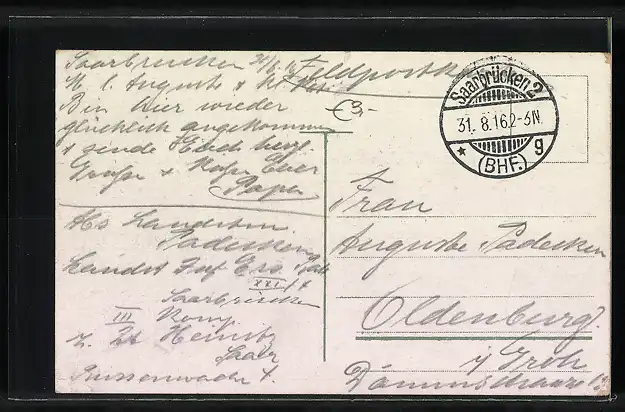 Saarbrücken 31/8 16 Feldpostk
M. l. Auguste & kl.
Bin hier wieder
glücklich angekommen
& sende Euch herzl.
Grüße & Küße Euer
Papa
Abs Landstm.
Padecken
Landst Inf Ers. Batl
XXI/7
Saarbrücken
III Komp.
z. Zt Heinitz
Saar
Russenwache
€3,-
Saarbrücken 2
31. 8. 16. 2-3N.
* (BHF.) g
Frau
Auguste Padecken
Oldenburg
i/ Groh